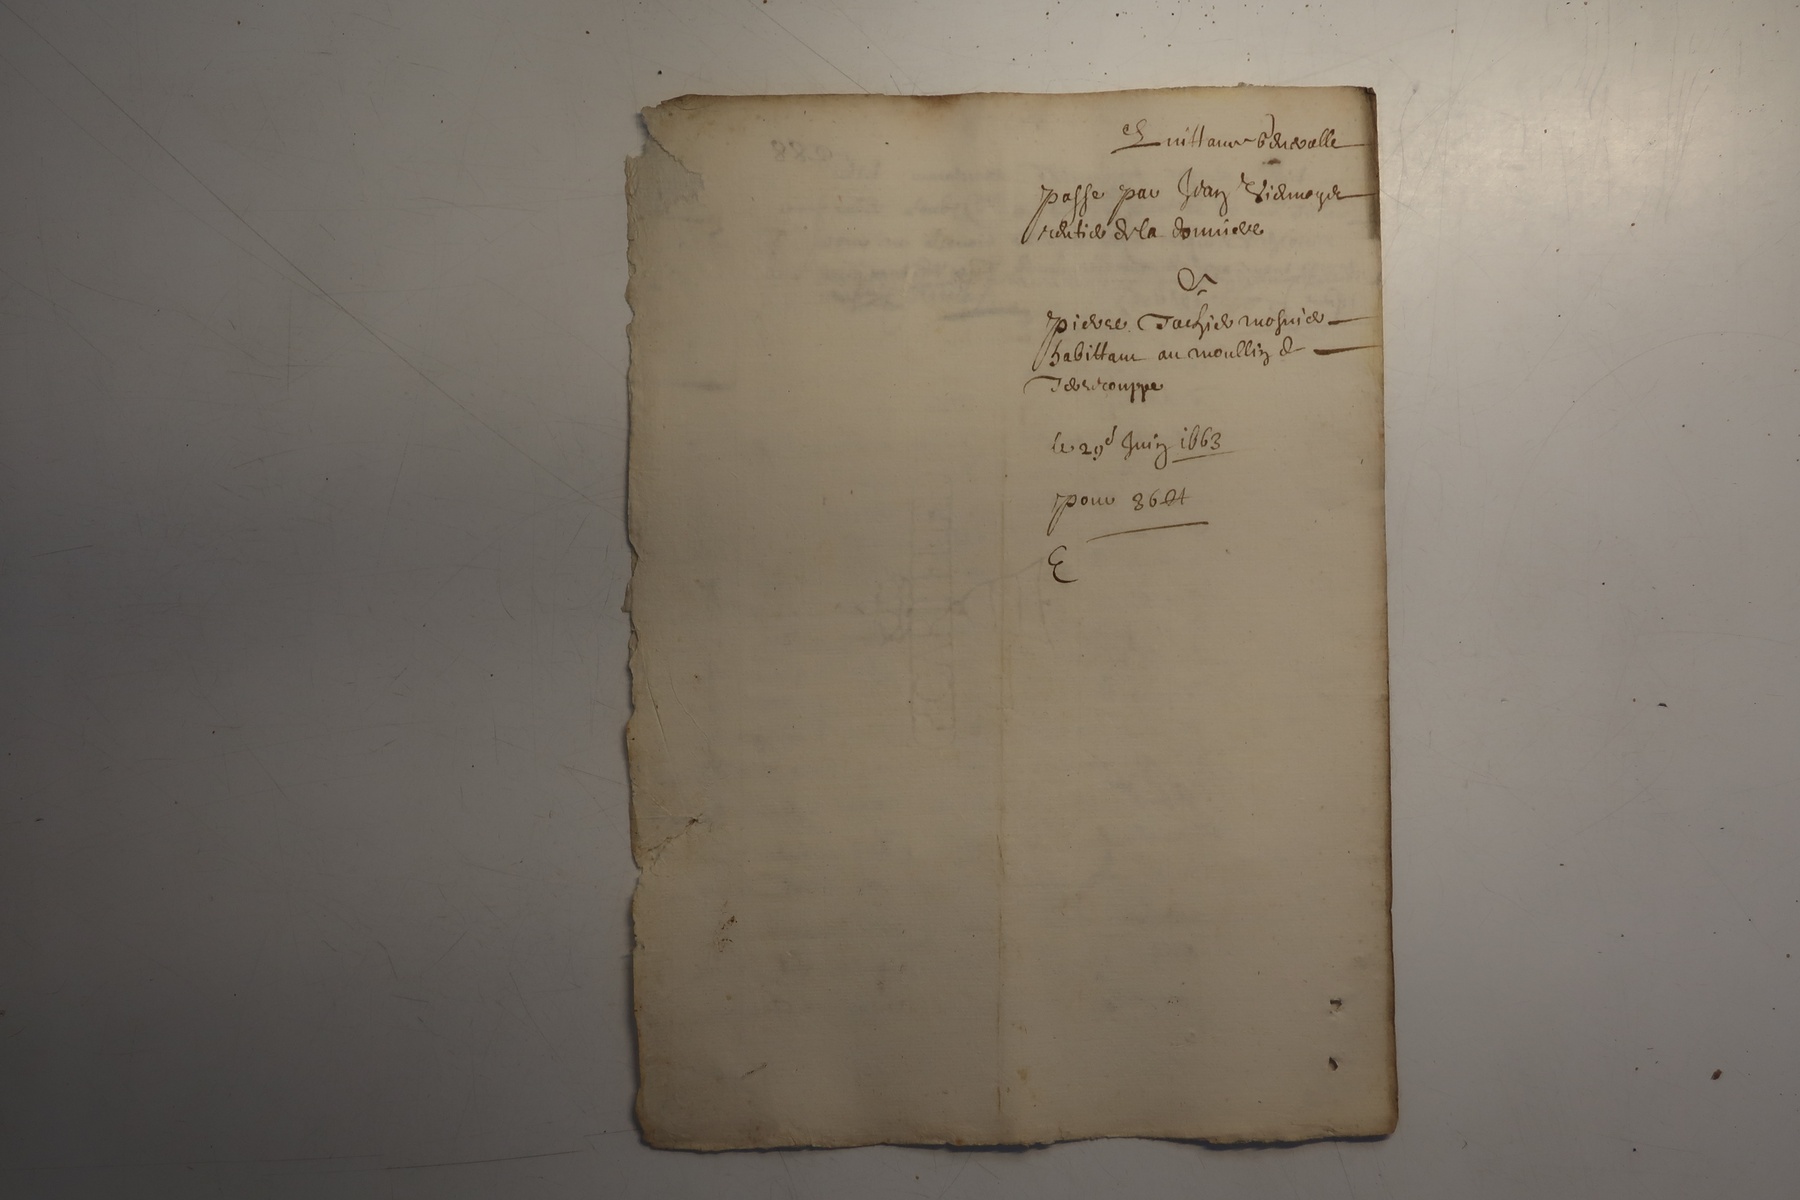 Quittance generalle
passe par Jean
rentier de la bonniere
Et
Pierre Tachier mosnier
habittant au moullin de
Terrecouppe
le 29e Juin 1663
pour 36